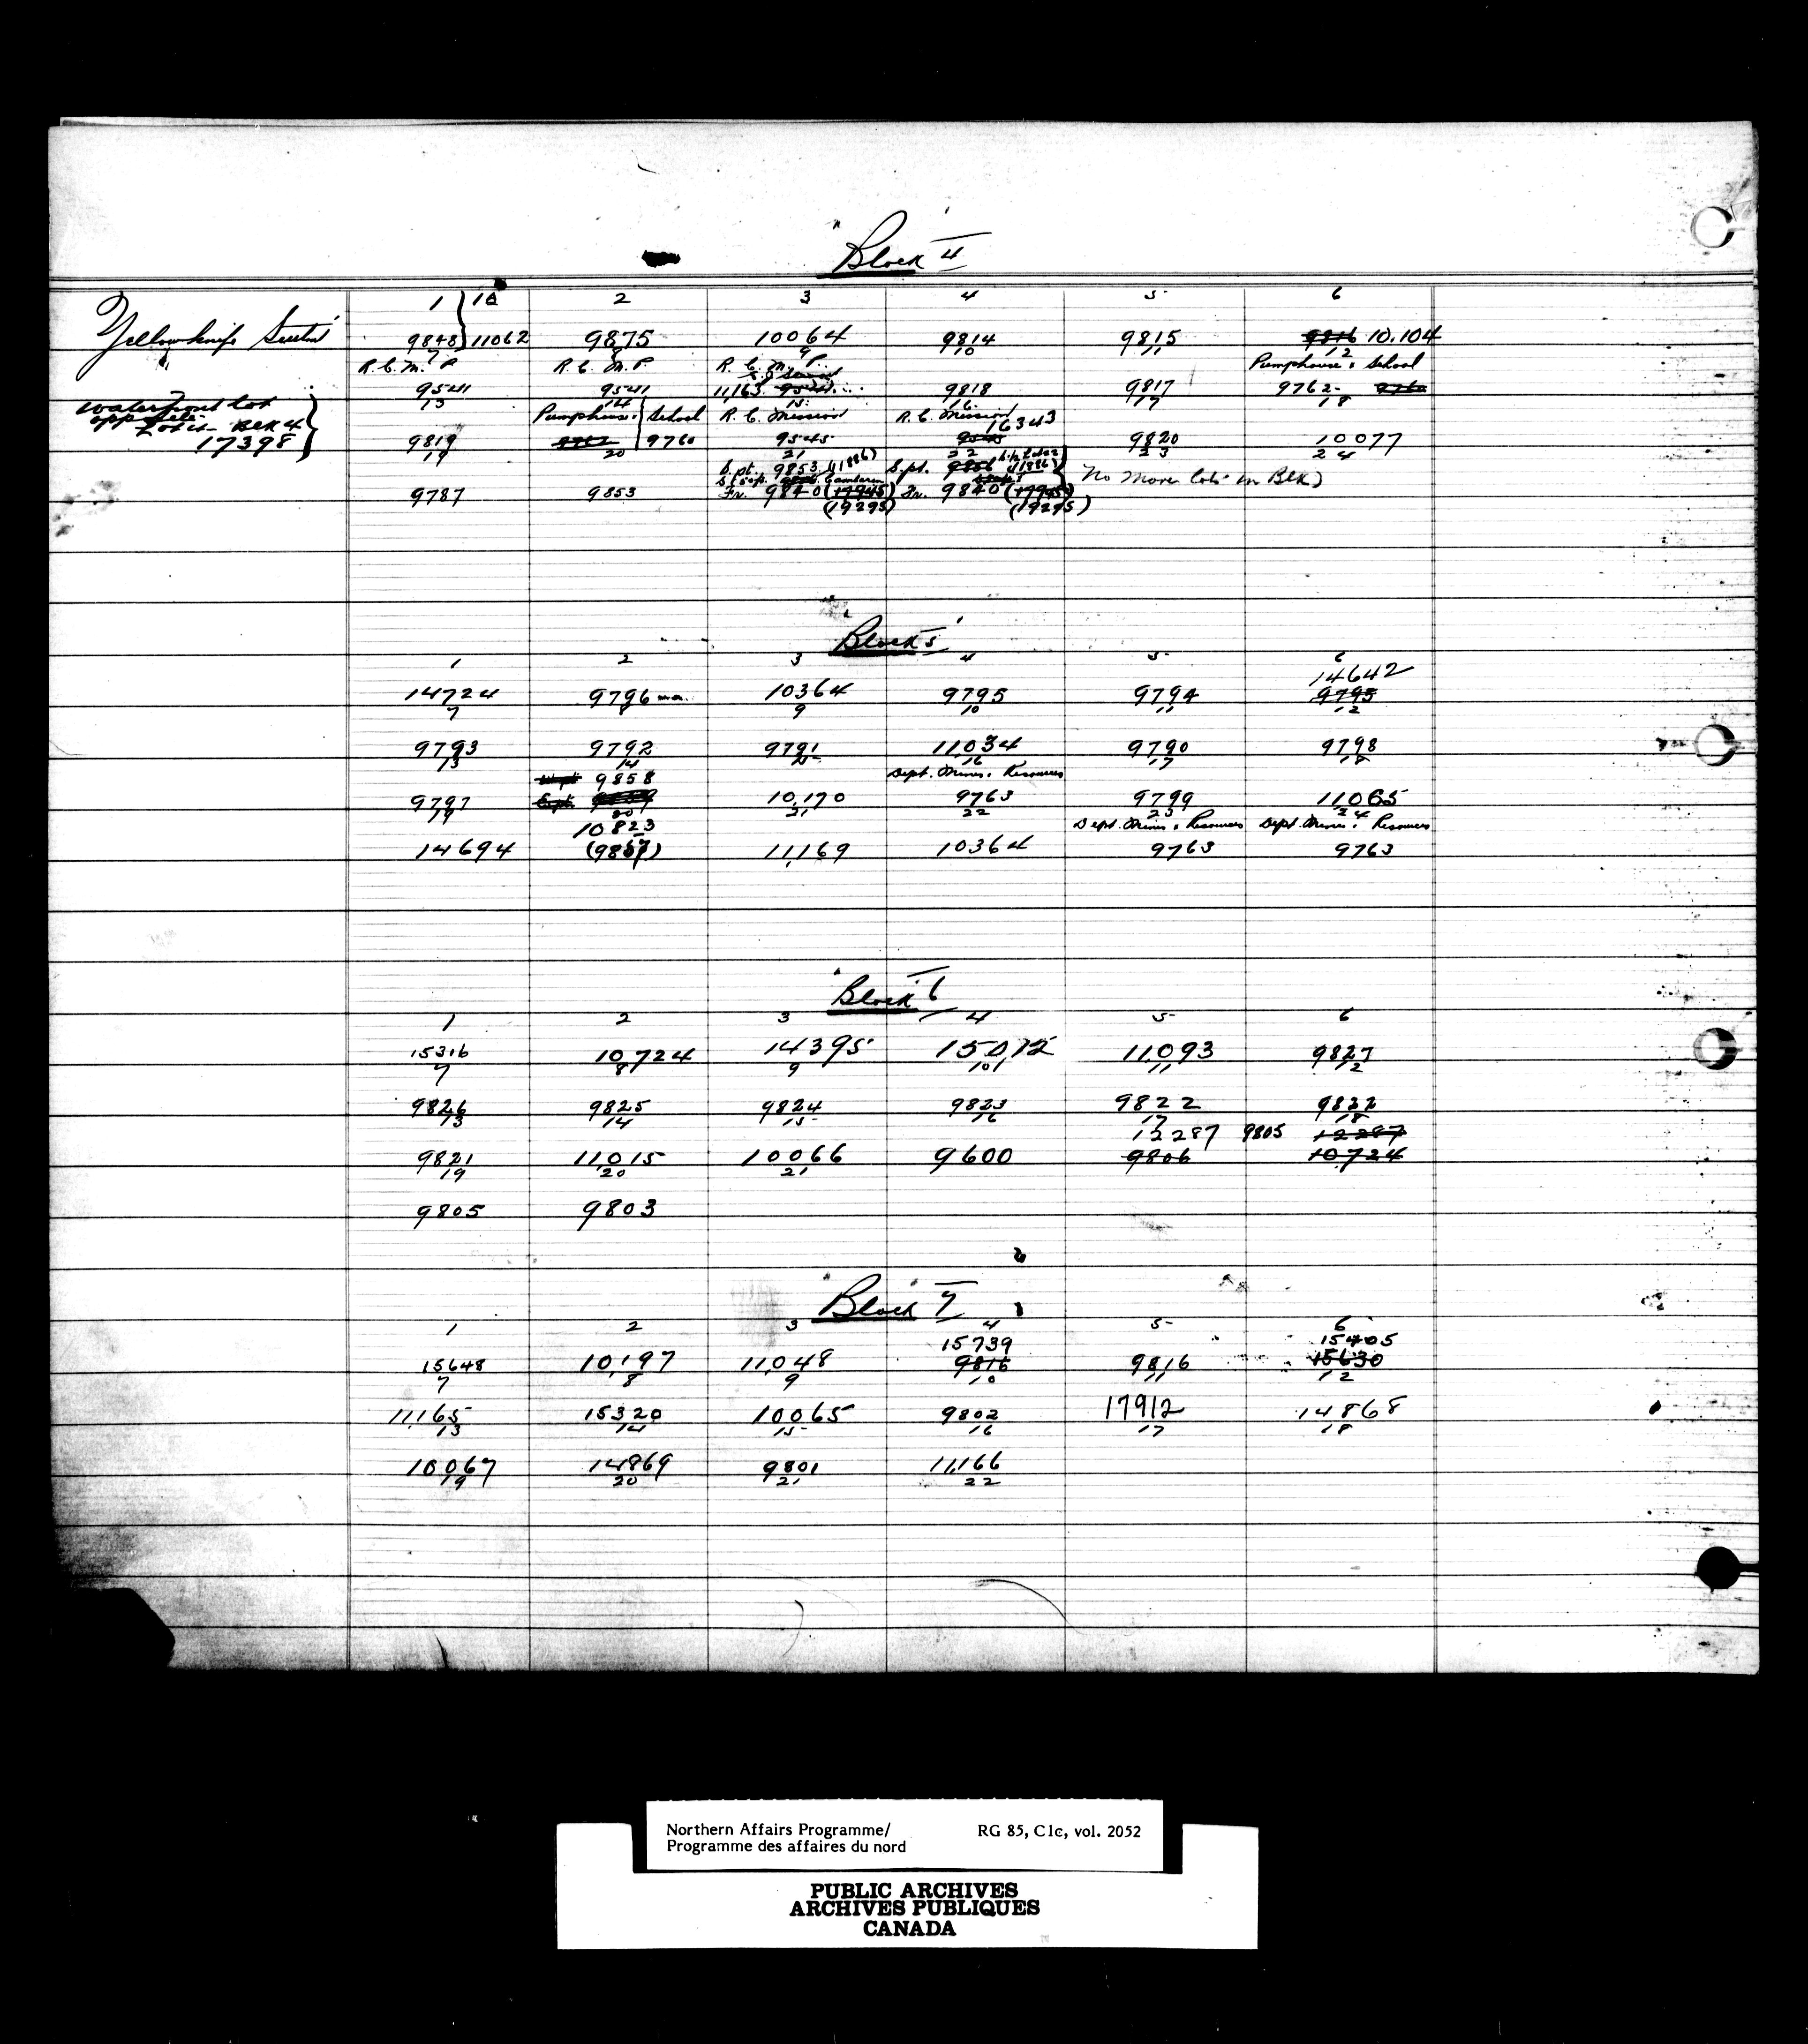 "Block 4"
1 } 1A 2 3 4 5 6
Yellowknife
9848 } 11062 9875 10064 9814 9815 9816 10.104
7 8 9 10 11 12
R. C. M. P R. C. M. P. R. C. M. P. Pumphouse & School
9541 9541 11,163 9818 9817 9762
13 14 15 16 17 18
Waterfront lot
opp
Lot Blk 4
17398 }
Pumphouse School R. C. Mission R. C. Mission
16343
9819 9762 9760 9545 9545 9820 10077
19 20 21 22 23 24
S. pt. 9853 (11886) S. pt. 9856 (11886)
No More lots in Blk)
9787 9853 Fr. 9840 (17945) Fr. 9840 (17945)
(19295) (19295)
"Block 5"
1 2 3 4 5 6
14642
14724 9796 10364 9795 9794 9795
7 8 9 10 11 12
9793 9792 9791 11034 9790 9798
13 14 15 16 17 18
9858 Dept. Mines & Resources
9797 10,170 9763 9799 11065
19 20 21 22 23 24
10823 Dept. Mines & Resources Dept. Mines & Resources
14694 (9857) 11,169 10364 9763 9763
"Block 6"
1 2 3 4 5 6
15316 10,724 14395 15012 11,093 9827
7 8 9 10 11 12
9826 9825 9824 9823 9822 9822
13 14 15 16 17 18
12287 9805 12287
9821 11,015 10066 9600 9806 10,724
19 20 21
9805 9803
"Block 7"
1 2 3 4 5 6
15739 15405
15648 10,197 11,048 9816 9816 15630
7 8 9 10 11 12
11,165 15320 10065 9802 17912 14868
13 14 15 16 17 18
10067 14869 9801 11,166
19 20 21 22
Northern Affairs Programme/ RG 85, C1c, vol. 2052
Programme des affaires du nord
PUBLIC ARCHIVES
ARCHIVES PUBLIQUES
CANADA